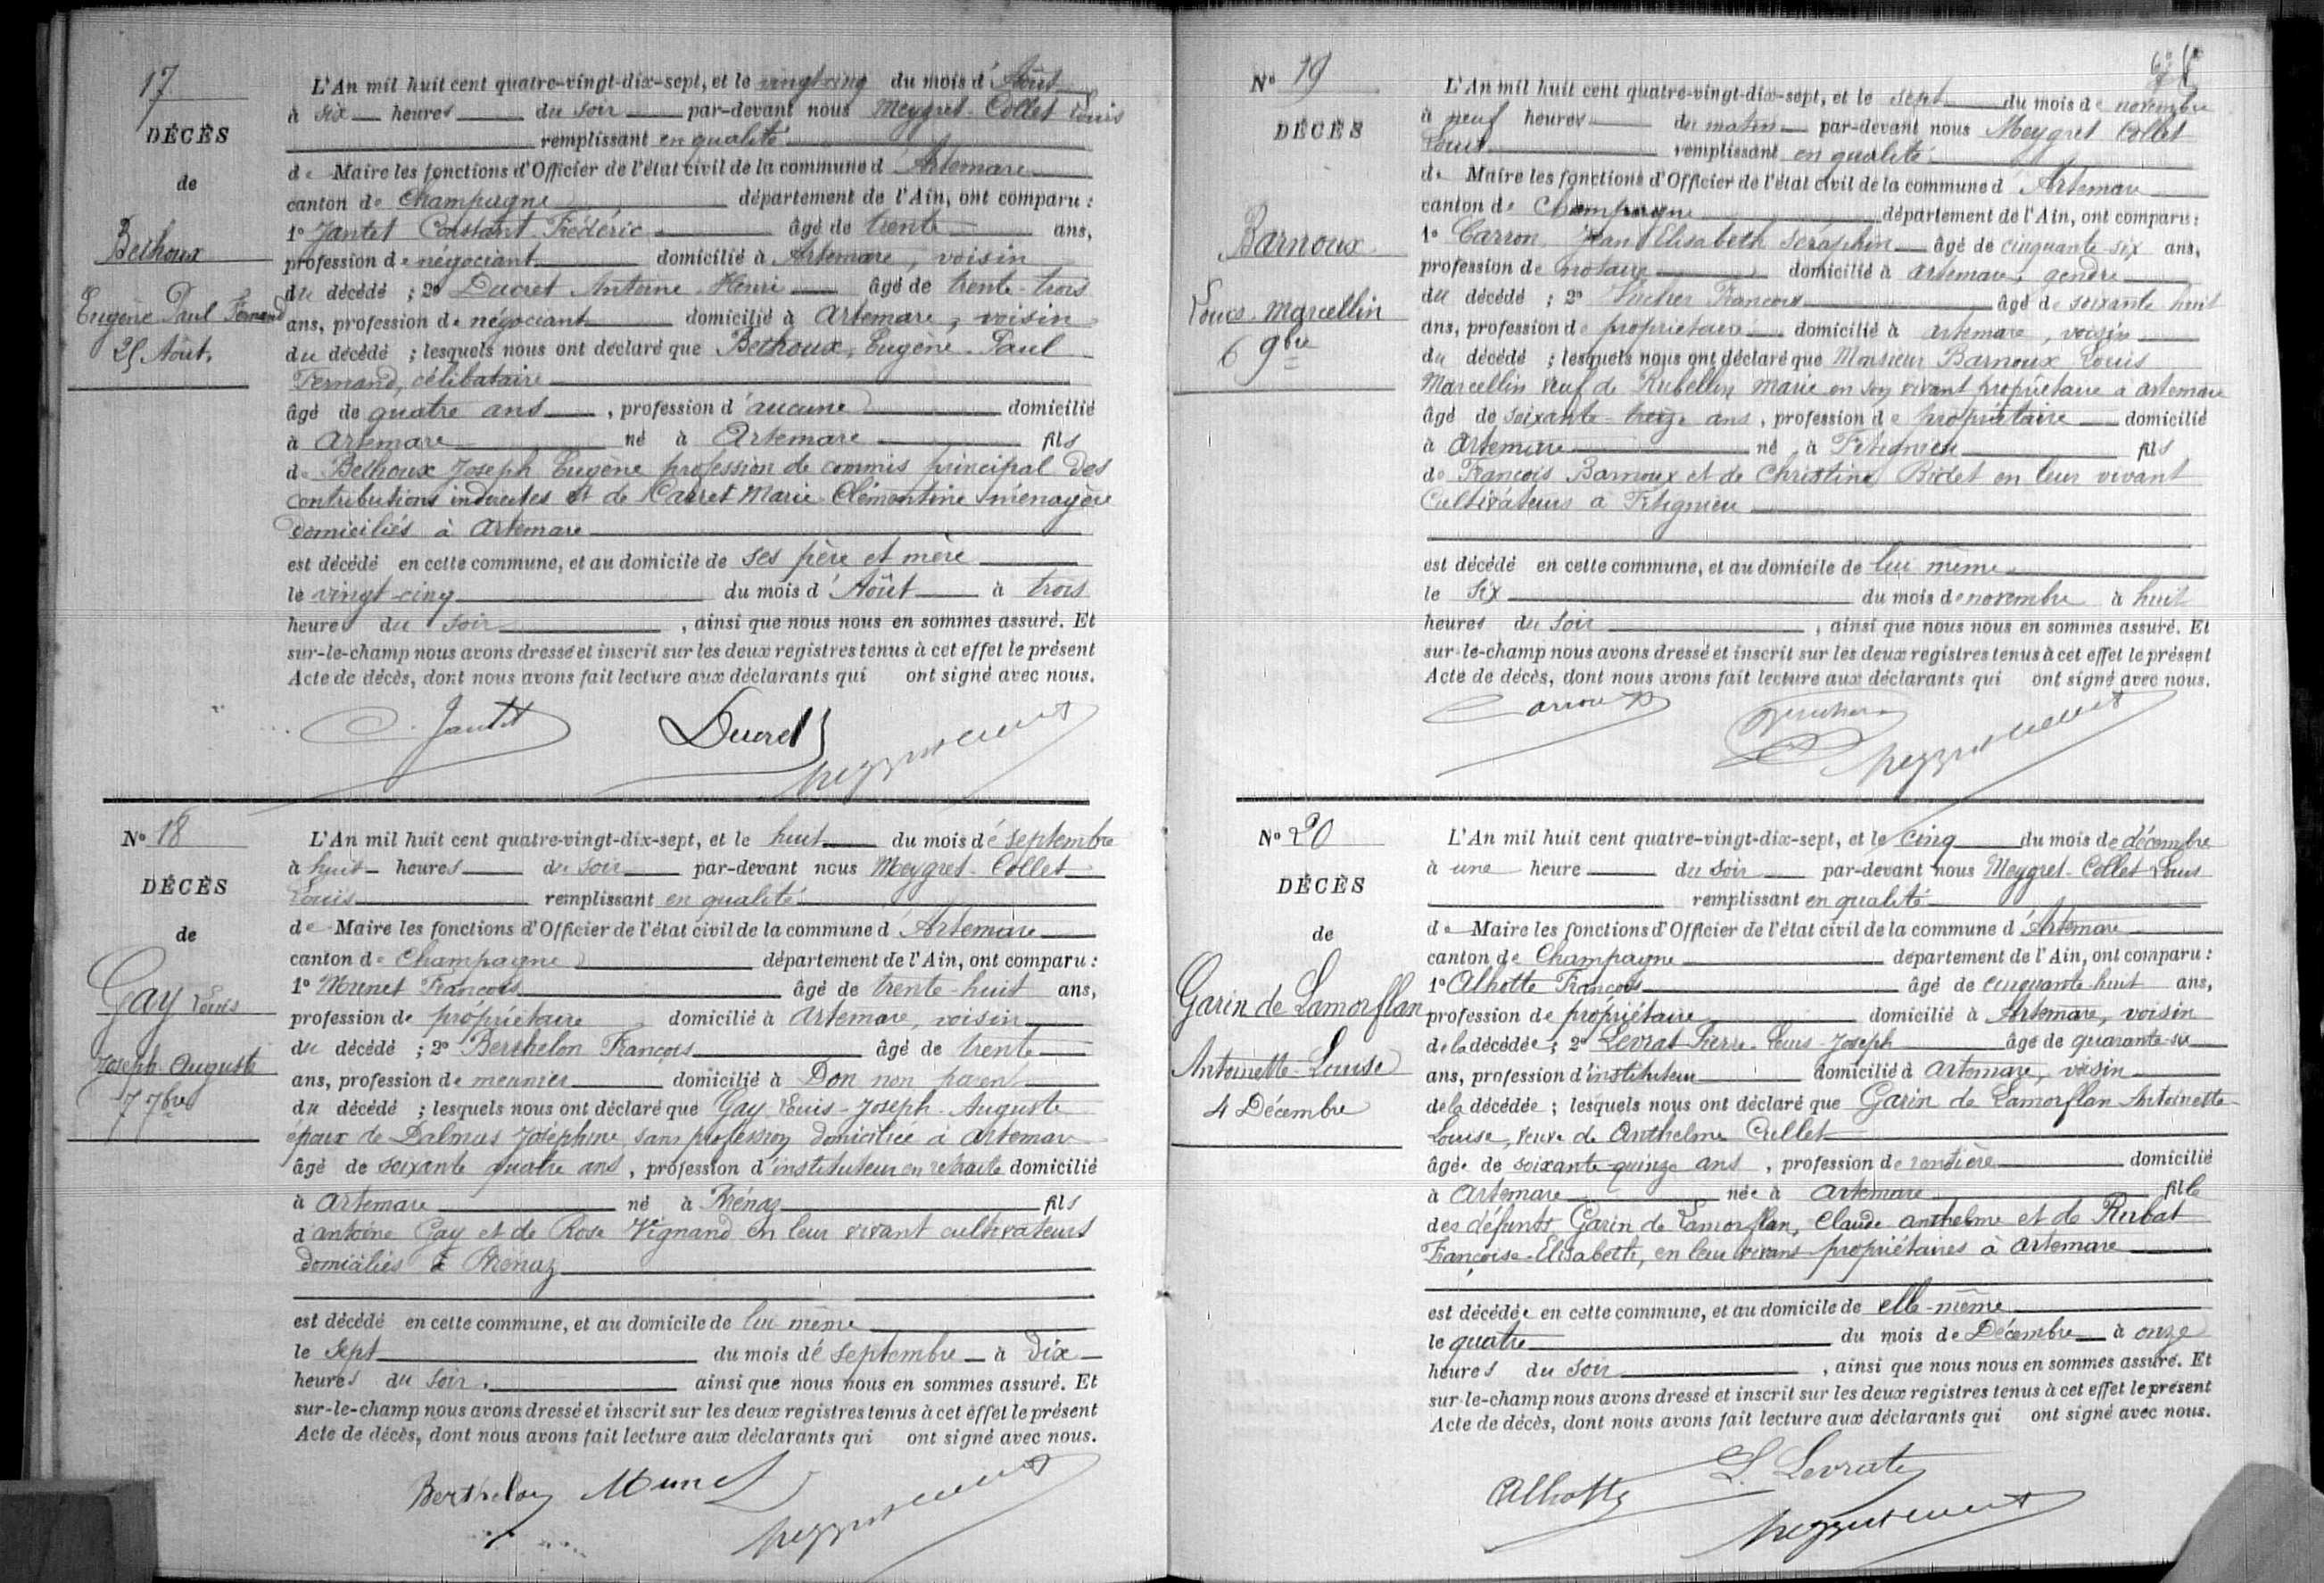 17
DÉCÈS
de
Bethoux
Eugène Paul Fernand
25 Août,
L'An mil huit cent quatre-vingt-dix-sept, et le vingt cinq du mois d'Août
à six heures du soir par-devant nous Meygret-Collet Louis
remplissant en qualité
de Maire les fonctions d'Officier de l'état civil de la commune d'Artemare
canton de Champagne département de l'Ain, ont comparu :
1° Jantet Constant Frédéric âgé de trente ans,
profession de négociant domicilié à Artemare, voisin
du décédé ; 2° Ducret Antoine Henri âgé de trente-trois
ans, profession de négociant domicilié à Artemare, voisin
du décédé ; lesquels nous ont déclaré que Bethoux, Eugène-Paul
Fernand, célibataire
âgé de quatre ans, profession d'aucune domicilié
à Artemare né à Artemare fils
de Bethoux Joseph Eugène profession de commis principal des
contributions indirectes et de Carret Marie-Clémentine ménagère
domiciliés à Artemare
est décédé en cette commune, et au domicile de ses père et mère
le vingt-cinq du mois d'Août à trois
heures du soir, ainsi que nous nous en sommes assuré. Et
sur-le-champ nous avons dressé et inscrit sur les deux registres tenus à cet effet le présent
Acte de décès, dont nous avons fait lecture aux déclarants qui ont signé avec nous.
C. Jantet Ducret
N° 18
DÉCÈS
de
Gay Louis
Joseph Auguste
7 7bre
L'An mil huit cent quatre-vingt-dix-sept, et le huit du mois de septembre
à huit heures du soir par-devant nous Meygret-Collet
Louis remplissant en qualité
de Maire les fonctions d'Officier de l'état civil de la commune d'Artemare
canton de Champagne département de l'Ain, ont comparu :
1° Munet François âgé de trente-huit ans,
profession de propriétaire domicilié à Artemare, voisin
du décédé ; 2° Berthelon François âgé de trente
ans, profession de meunier domicilié à Don non parent
du décédé ; lesquels nous ont déclaré que Gay Louis-Joseph-Auguste
époux de Dalmas Joséphine, sans profession domiciliée à Artemare
âgé de soixante quatre ans, profession d'instituteur en retraite domicilié
à Artemare né à Thénaz fils
d'Antoine Gay et de Rose Vignand en leur vivant cultivateurs
domiciliés à Thénaz
est décédé en cette commune, et au domicile de lui même
le sept du mois de septembre à dix
heures du soir, ainsi que nous nous en sommes assuré. Et
sur-le-champ nous avons dressé et inscrit sur les deux registres tenus à cet effet le présent
Acte de décès, dont nous avons fait lecture aux déclarants qui ont signé avec nous.
Berthelon Munet
N° 19
DÉCÈS
Barnoux
Louis-Marcellin
6 9bre
L'An mil huit cent quatre-vingt-dix-sept, et le sept du mois de novembre
à neuf heures du matin par-devant nous Meygret Collet
Louis remplissant en qualité
de Maire les fonctions d'Officier de l'état civil de la commune d'Artemare
canton de Champagne département de l'Ain, ont comparu :
1° Carron Jean Elisabeth Séraphin âgé de cinquante-six ans,
profession de notaire domicilié à Artemare, gendre
du décédé ; 2° François âgé de soixante huit
ans, profession de propriétaire domicilié à Artemare, voisin
du décédé ; lesquels nous ont déclaré que Monsieur Barnoux Louis
Marcellin veuf de Rubellin Marie en son vivant propriétaire à Artemare
âgé de soixante-treize ans, profession de propriétaire domicilié
à Artemare né à Fitignieu fils
de François Barnoux et de Christine Bidet en leur vivant
Cultivateurs à Fitignieu
est décédé en cette commune, et au domicile de lui même
le six du mois de novembre à huit
heures du soir, ainsi que nous nous en sommes assuré. Et
sur-le-champ nous avons dressé et inscrit sur les deux registres tenus à cet effet le présent
Acte de décès, dont nous avons fait lecture aux déclarants qui ont signé avec nous.
Carron
N° 20
DÉCÈS
de
Garin de Lamorflan
Antoinette-Louise
4 Décembre
L'An mil huit cent quatre-vingt-dix-sept, et le cinq du mois de décembre
à une heure du soir par-devant nous Meygret-Collet Louis
remplissant en qualité
de Maire les fonctions d'Officier de l'état civil de la commune d'Artemare
canton de Champagne département de l'Ain, ont comparu :
1° Alhotte François âgé de cinquante huit ans,
profession de propriétaire domicilié à Artemare, voisin
de la décédée ; 2° Levrat Pierre-Louis-Joseph âgé de quarante-six
ans, profession d'instituteur domicilié à Artemare, voisin
de la décédée ; lesquels nous ont déclaré que Garin de Lamorflan Antoinette
Louise, veuve de Anthelme Cullet
âgée de soixante-quinze ans, profession de rentière domicilié
à Artemare née à Artemare fille
des défunts Garin de Lamorflan, Claude Anthelme et de Rubat
Françoise-Elisabeth, en leur vivant propriétaires à Artemare
est décédée en cette commune, et au domicile de elle-même
le quatre du mois de Décembre à onze
heures du soir, ainsi que nous nous en sommes assuré. Et
sur-le-champ nous avons dressé et inscrit sur les deux registres tenus à cet effet le présent
Acte de décès, dont nous avons fait lecture aux déclarants qui ont signé avec nous.
Alhotte L. Levrat